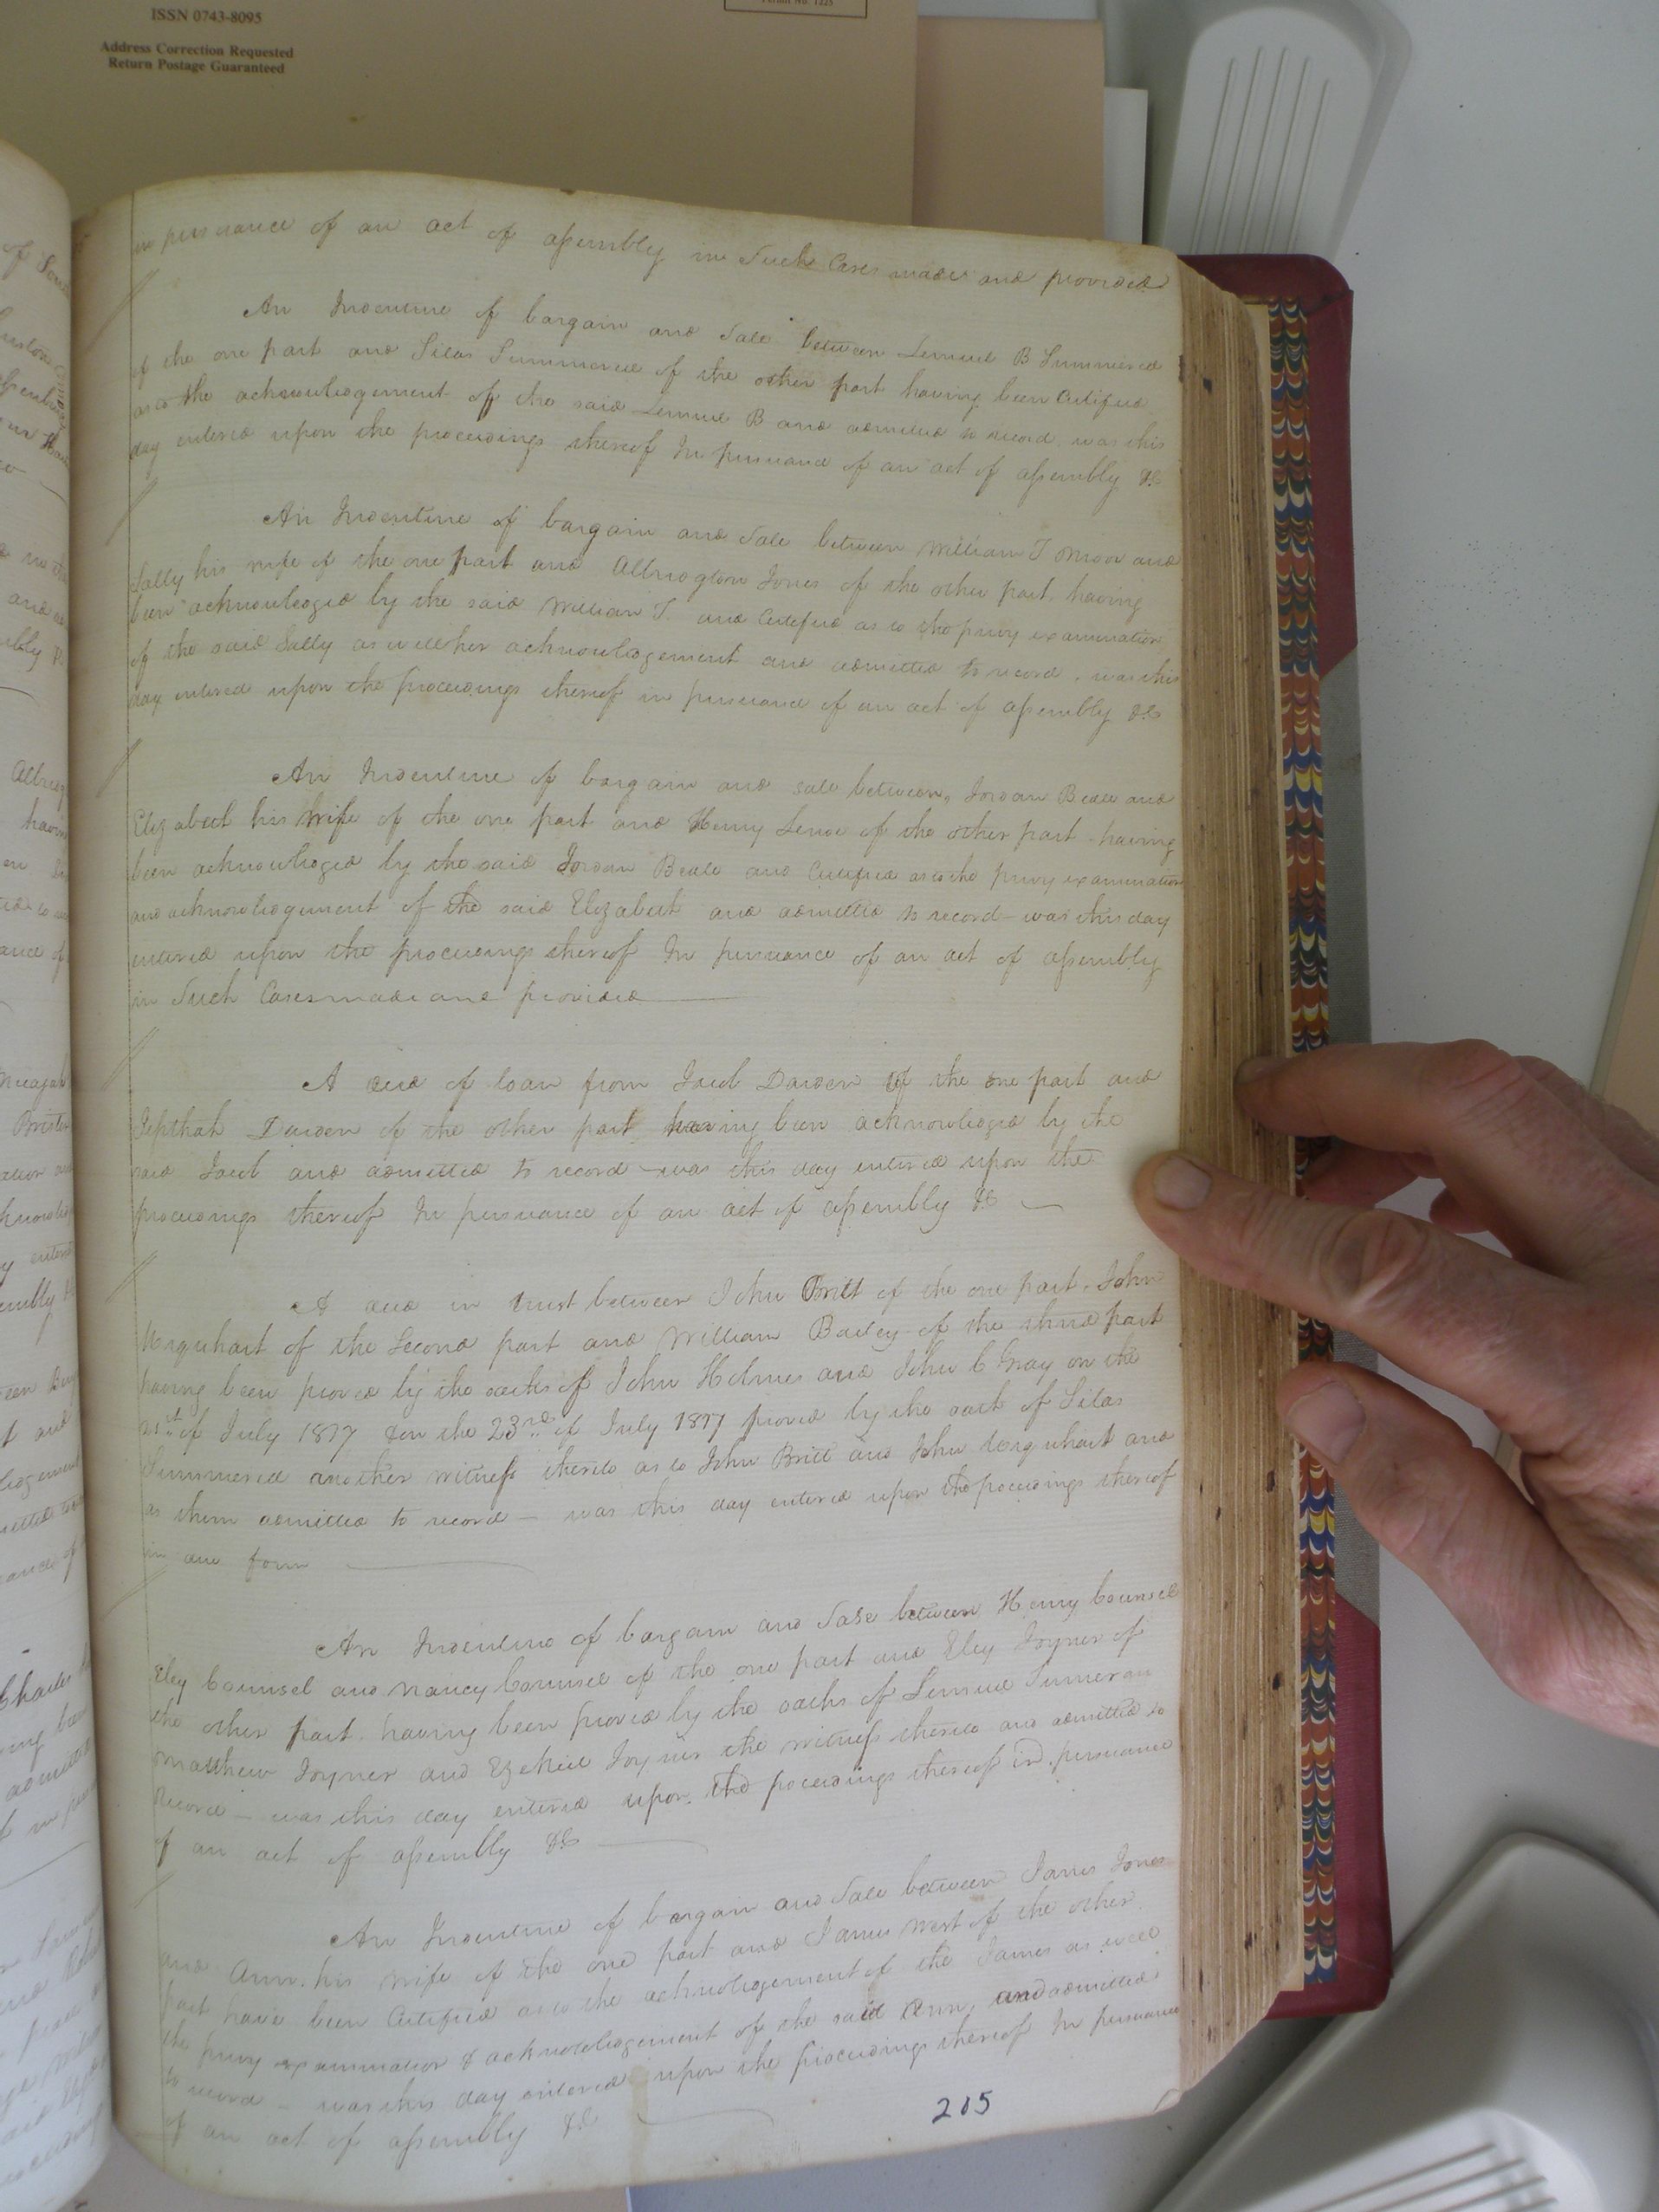 ISSN 0743-8095
Address Correction Requested
Return Postage Guaranteed
Permit No. 1225
in pursuance of an act of assembly in Such Cases made and provided
An Indenture of bargain and Sale between Lemuel B Summerell
of the one part and Silas Summerell of the other part having been Certified
as to the acknowledgement of the said Lemuel B and admitted to record, was this
day entered upon the proceedings thereof In pursuance of an act of assembly &c
An Indenture of bargain and Sale between William T Moor and
Sally his wife of the one part and Albridgton Jones of the other part. having
been acknowledged by the said William T. and Certified as to the privy examination
of the said Sally as well her acknowledgement and admitted to record, was this
day entered upon the proceedings thereof in pursuance of an act of assembly &c
An Indenture of bargain and sale between, Jordan Beale and
Elizabeth his wife of the one part and Henry of the other part - having
been acknowledged by the said Jordan Beale and Certified as to the privy examination
and acknowledgement of the said Elizabeth and admitted to record - was this day
entered upon the proceedings thereof In pursuance of an act of assembly
in Such Cases made and provided
A deed of loan from Jacob Darden of the one part and
Jepthah Darden of the other part having been acknowledged by the
said Jacob and admitted to record - was this day entered upon the
proceedings thereof In pursuance of an act of assembly &c
A deed in trust between John Britt of the one part, John
Urquhart of the Second part and William Bailey of the third part
having been proved by the oaths of John Holmes and John C Gray on the
21st of July 1817 & on the 23rd of July 1817 proved by the oath of Silas
Summerell another witness thereto as to John Britt and John Urquhart and
as them admitted to record - was this day entered upon the proceedings thereof
in due form
An Indenture of bargain and Sale between Henry Counsel
Eley Counsel and Nancy Counsel of the one part and Eley Joyner of
the other part. having been proved by the oaths of Lemuel
Matthew Joyner and Ezekiel Joyner the witness thereto and admitted to
Record - was this day entered upon the proceedings thereof in pursuance
of an act of assembly &c
An Indenture of bargain and Sale between James Jones
and Ann his wife of the one part and James West of the other
part have been Certified as to the acknowledgement of the James as well
the privy examination & acknowledgement of the said Ann, and admitted
to record - was this day entered upon the proceedings thereof In pursuance
of an act of assembly &c
205